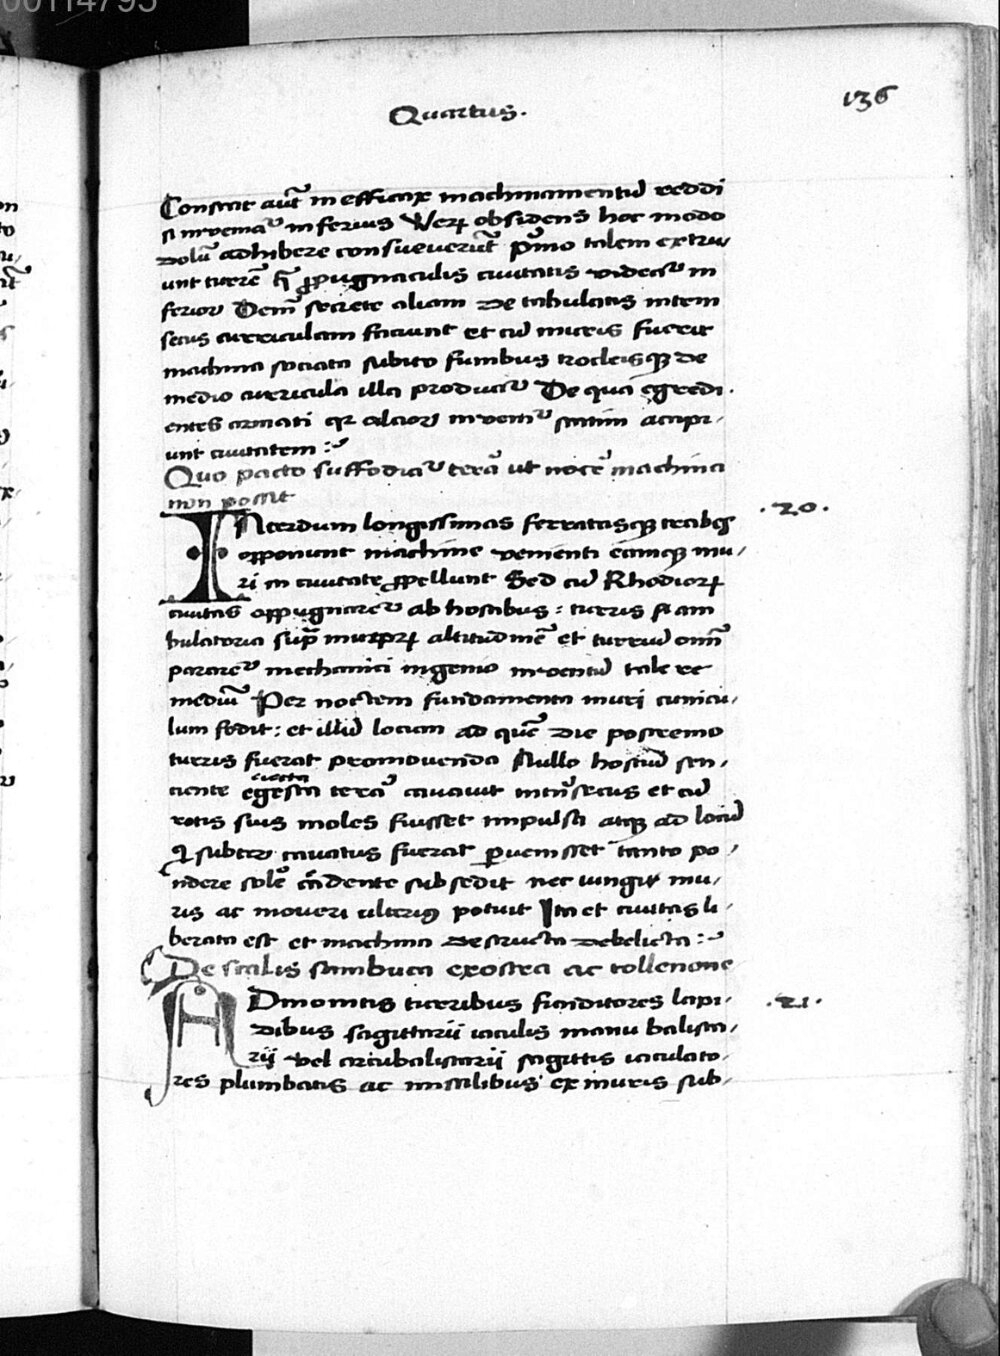 00114795
Quartus.
136
Constat aut̃ inefficax machinamentũ reddi
si inveniaᵗ inferius Verꝝ obsidens hoc modo
dolũ adhibere consueverũt pͥmo talem extru
unt turrẽ q̃ ꝓpugnaculis civitatis videaᵗ in
ferior Deinͫ secrete aliam de tabulatis intrin
secus curriculam faciunt et cũ muris fuerit
machina sociata subito funibus trocleisqꝫ de
medio curricula illa producaᵗ De qua egredi
entes armati qꝛ alcior inveniᵗ statim accipi
unt civitatem :~
Quo pacto suffodiaᵗ terã ut nocẽ machina
non possit
INterdum longissimas ferratasqꝫ trabes
opponunt machine venienti eamqꝫ mu
ri in civitate ꝓpellunt Sed cũ Rhodiorꝝ
civitas oppugnareᵗ ab hostibus : turris st am
bulatoria supͣ muroꝝ altitudinẽ et turriũ oim̃
parareᵗ mechanici ingenio inventũ tale re
mediũ Per noctem fundamenta muri cunicu
lum fodit : et illũ locum ad quẽ die postremo
turris fuerat promovenda Nullo hostiũ sen
ciente egesta terã cavavit intrͥsecus et cũ
rotis suis moles fuisset impulsa atqꝫ ad locũ
qͥ subter cavatus fuerat ꝑvenisset tanto po
ndere solo cẽdente subsedit nec iungi mu
ris ac moveri ulteriꝰ potuit Ita et civitas li
berata est et machina destructa debelicta :~
De scalis sambuca exostra ac tollenone
ADmontis turribus funditores lapi
dibus sagittarii iaculis manu balista
rii vel arcubalistarii sagittis iaculato
res plumbatis ac missilibus ex muris sub
.20.
.21.